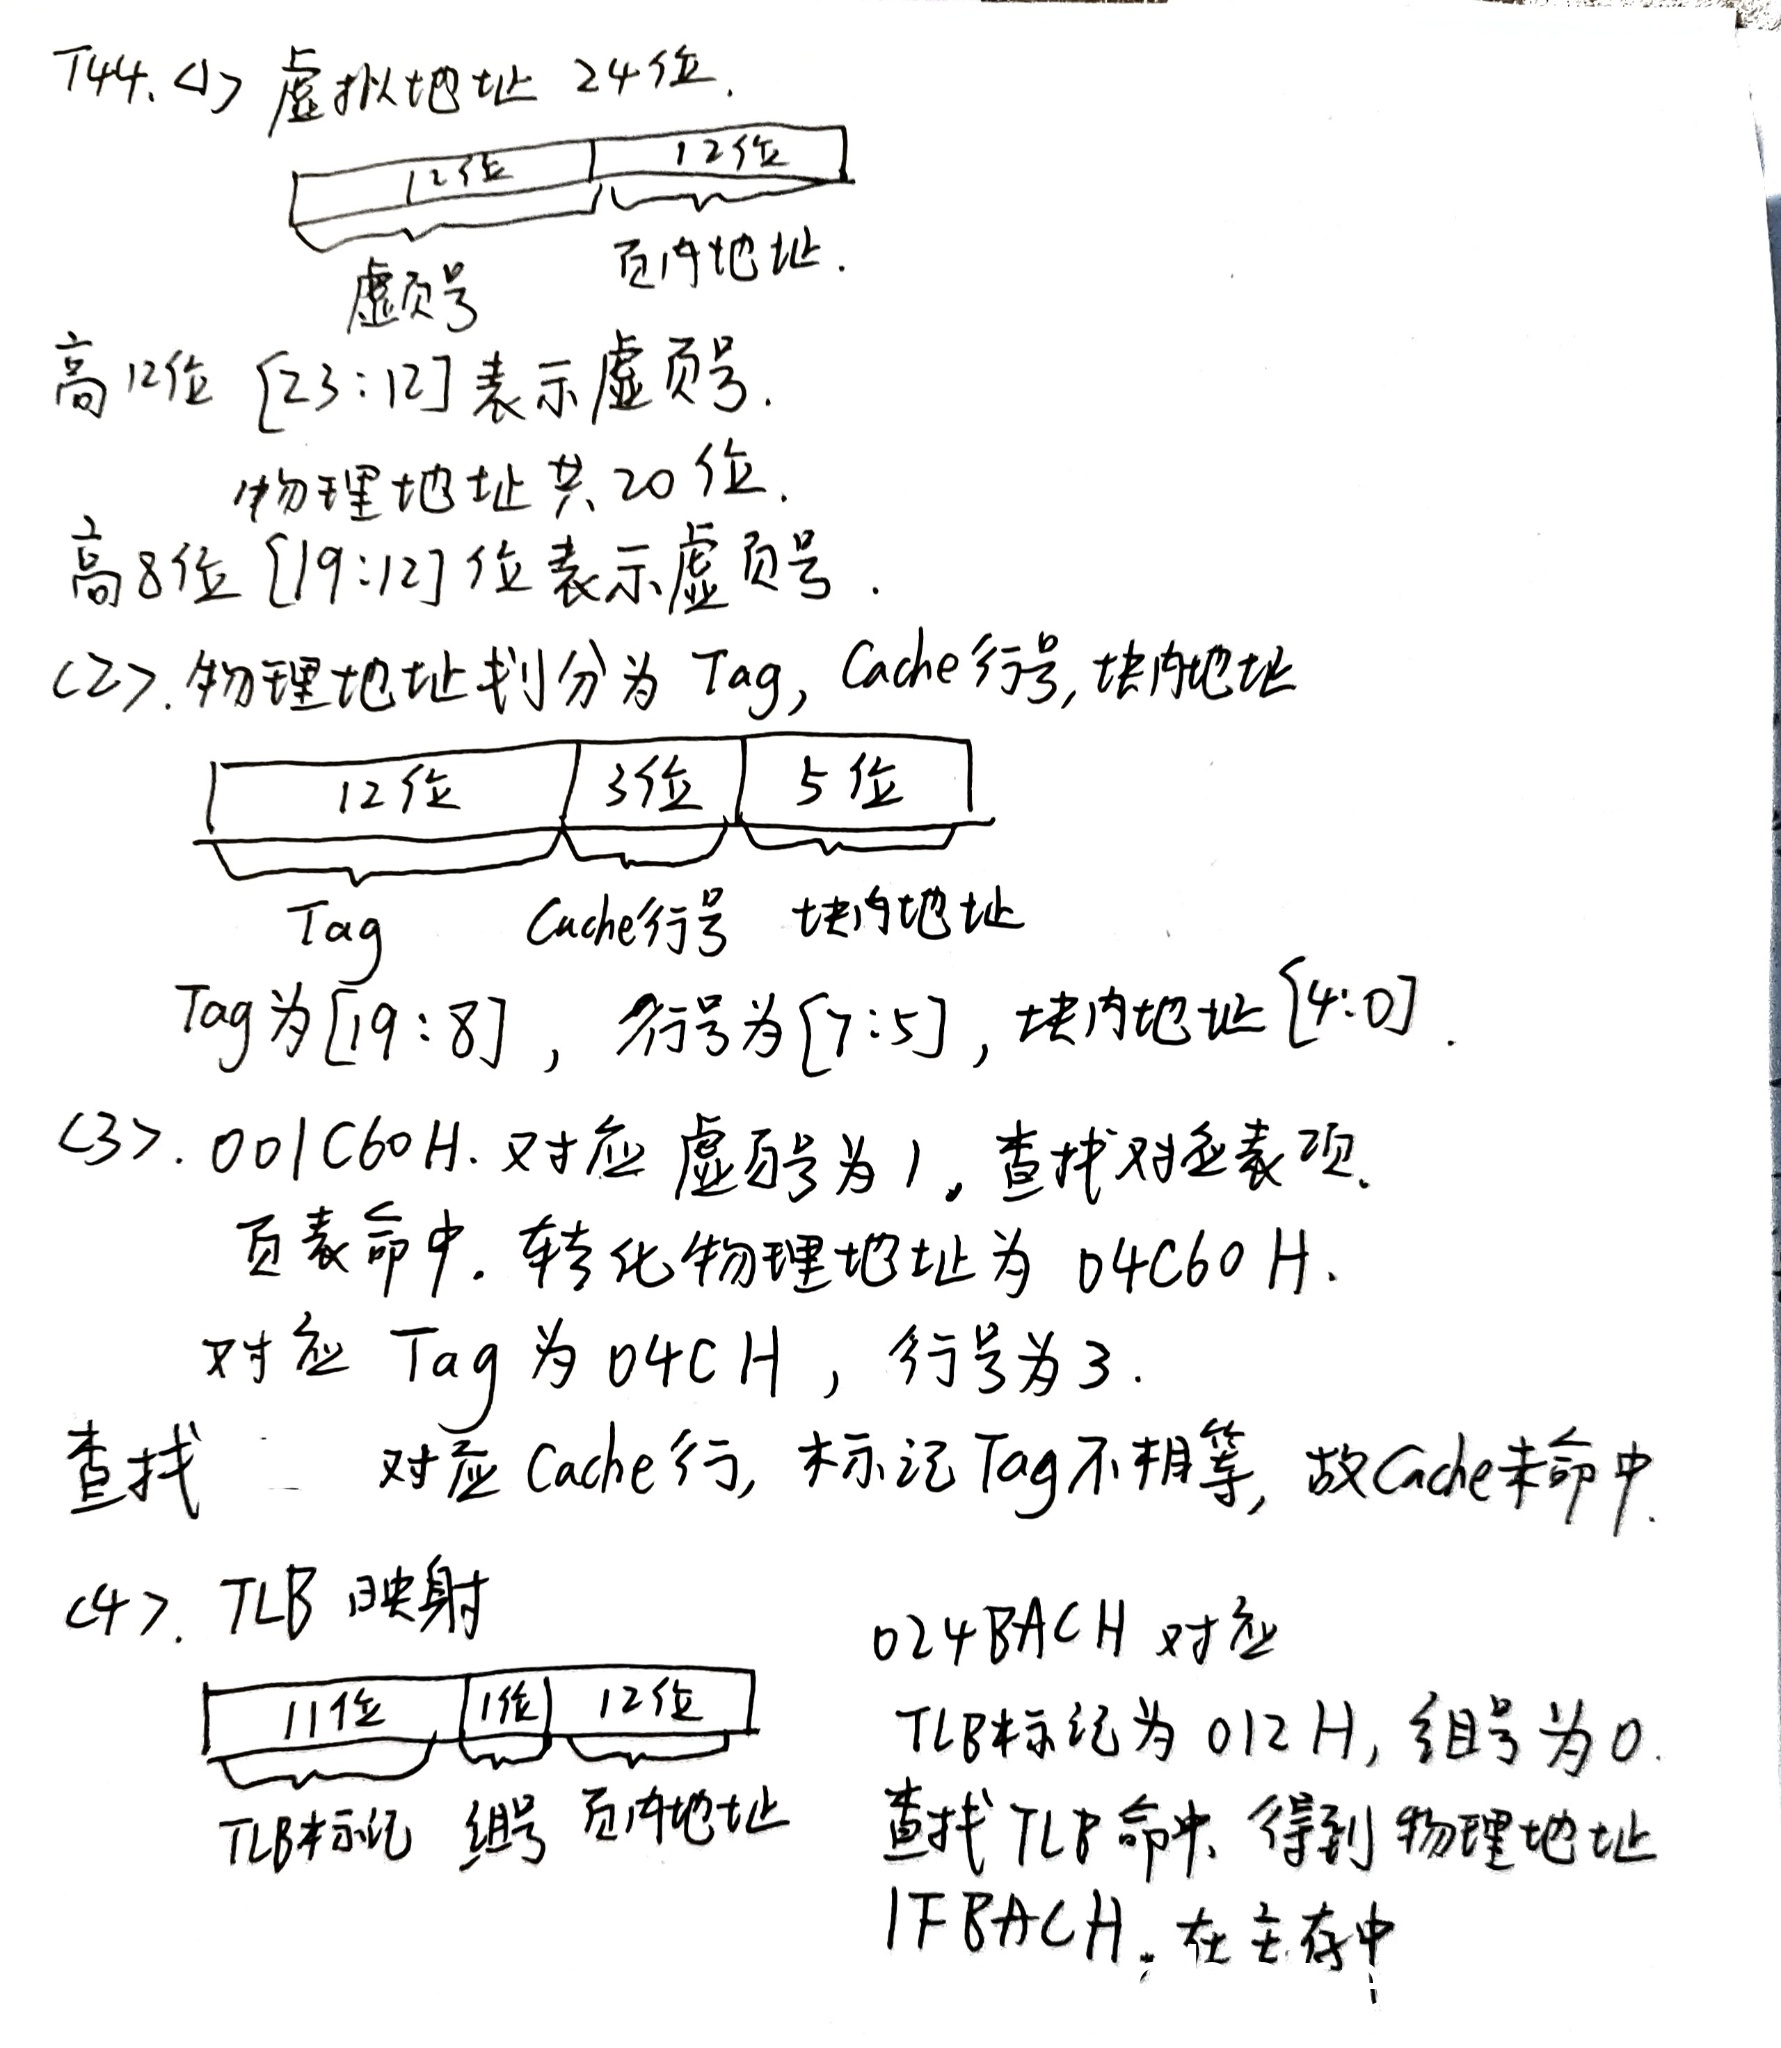 T44.<1> 虚拟地址 24位.
12位 12位
虚页号 页内地址.
高12位 [23:12]表示虚页号.
物理地址共20位.
高8位 [19:12]位表示虚页号.
<2>.物理地址划分为 Tag, Cache行号,块内地址
12位 3位 5位
Tag Cache行号 块内地址
Tag为[19:8], 行号为[7:5], 块内地址[4:0].
<3>. 001C60H. 对应虚页号为1。查找对应表项.
页表命中. 转化物理地址为 04C60H.
对应 Tag 为 04CH, 行号为3.
查找 对应Cache行, 标记Tag不相等, 故Cache未命中.
<4>. TLB 映射
11位 1位 12位
TLB标记 组号 页内地址
024BACH 对应
TLB标记为 012H, 组号为0.
查找TLB命中, 得到物理地址
1FBACH. 在主存中